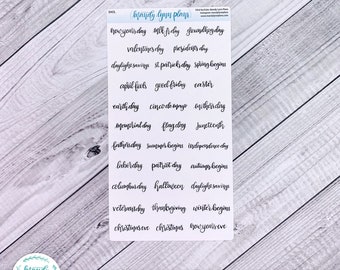 brandy lynn plans
new years day mlk jr day groundhog day
valentines day presidents day
daylight savings st patricks day spring begins
april fools good friday easter
earth day cinco de mayo mothers day
memorial day flag day juneteenth
fathers day summer begins independence day
labor day patriot day autumn begins
columbus day halloween daylight savings
veterans day thanksgiving winter begins
christmas eve christmas new years eve